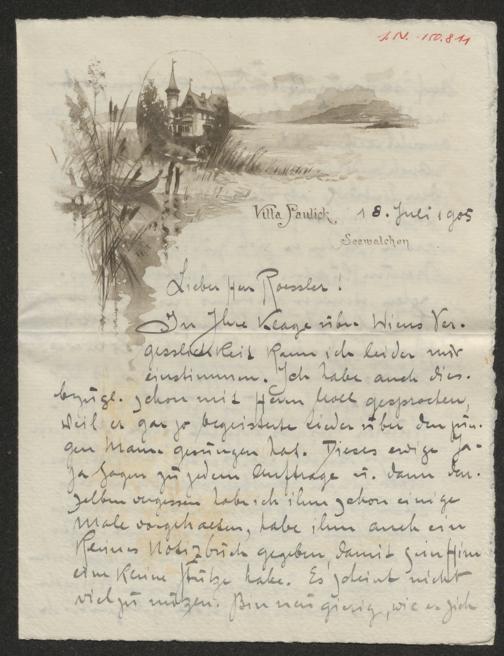 I.N. 150.811
Villa Paulick, 18. Juli 1905
Seewalchen
Lieber Herr Roessler!
In Ihre Klage über Wiens Ver-
gesslichkeit kann ich leider nur
einstimmen. Ich habe auch dies-
bezügl. schon mit Herrn Moll gesprochen,
weil er gar so begeisterte Lieder über den jun-
gen Mann gesungen hat. Dieses ewige Ja-
Ja sagen zu jedem Auftrage u. dann den-
selben vergessen habe ich ihm schon einige
Male vorgehalten, habe ihm auch ein
kleines Notizbuch gegeben, damit sein Hirn
eine kleine Stütze habe. Es scheint nicht
viel zu nützen. Bin neugierig, wie er sich